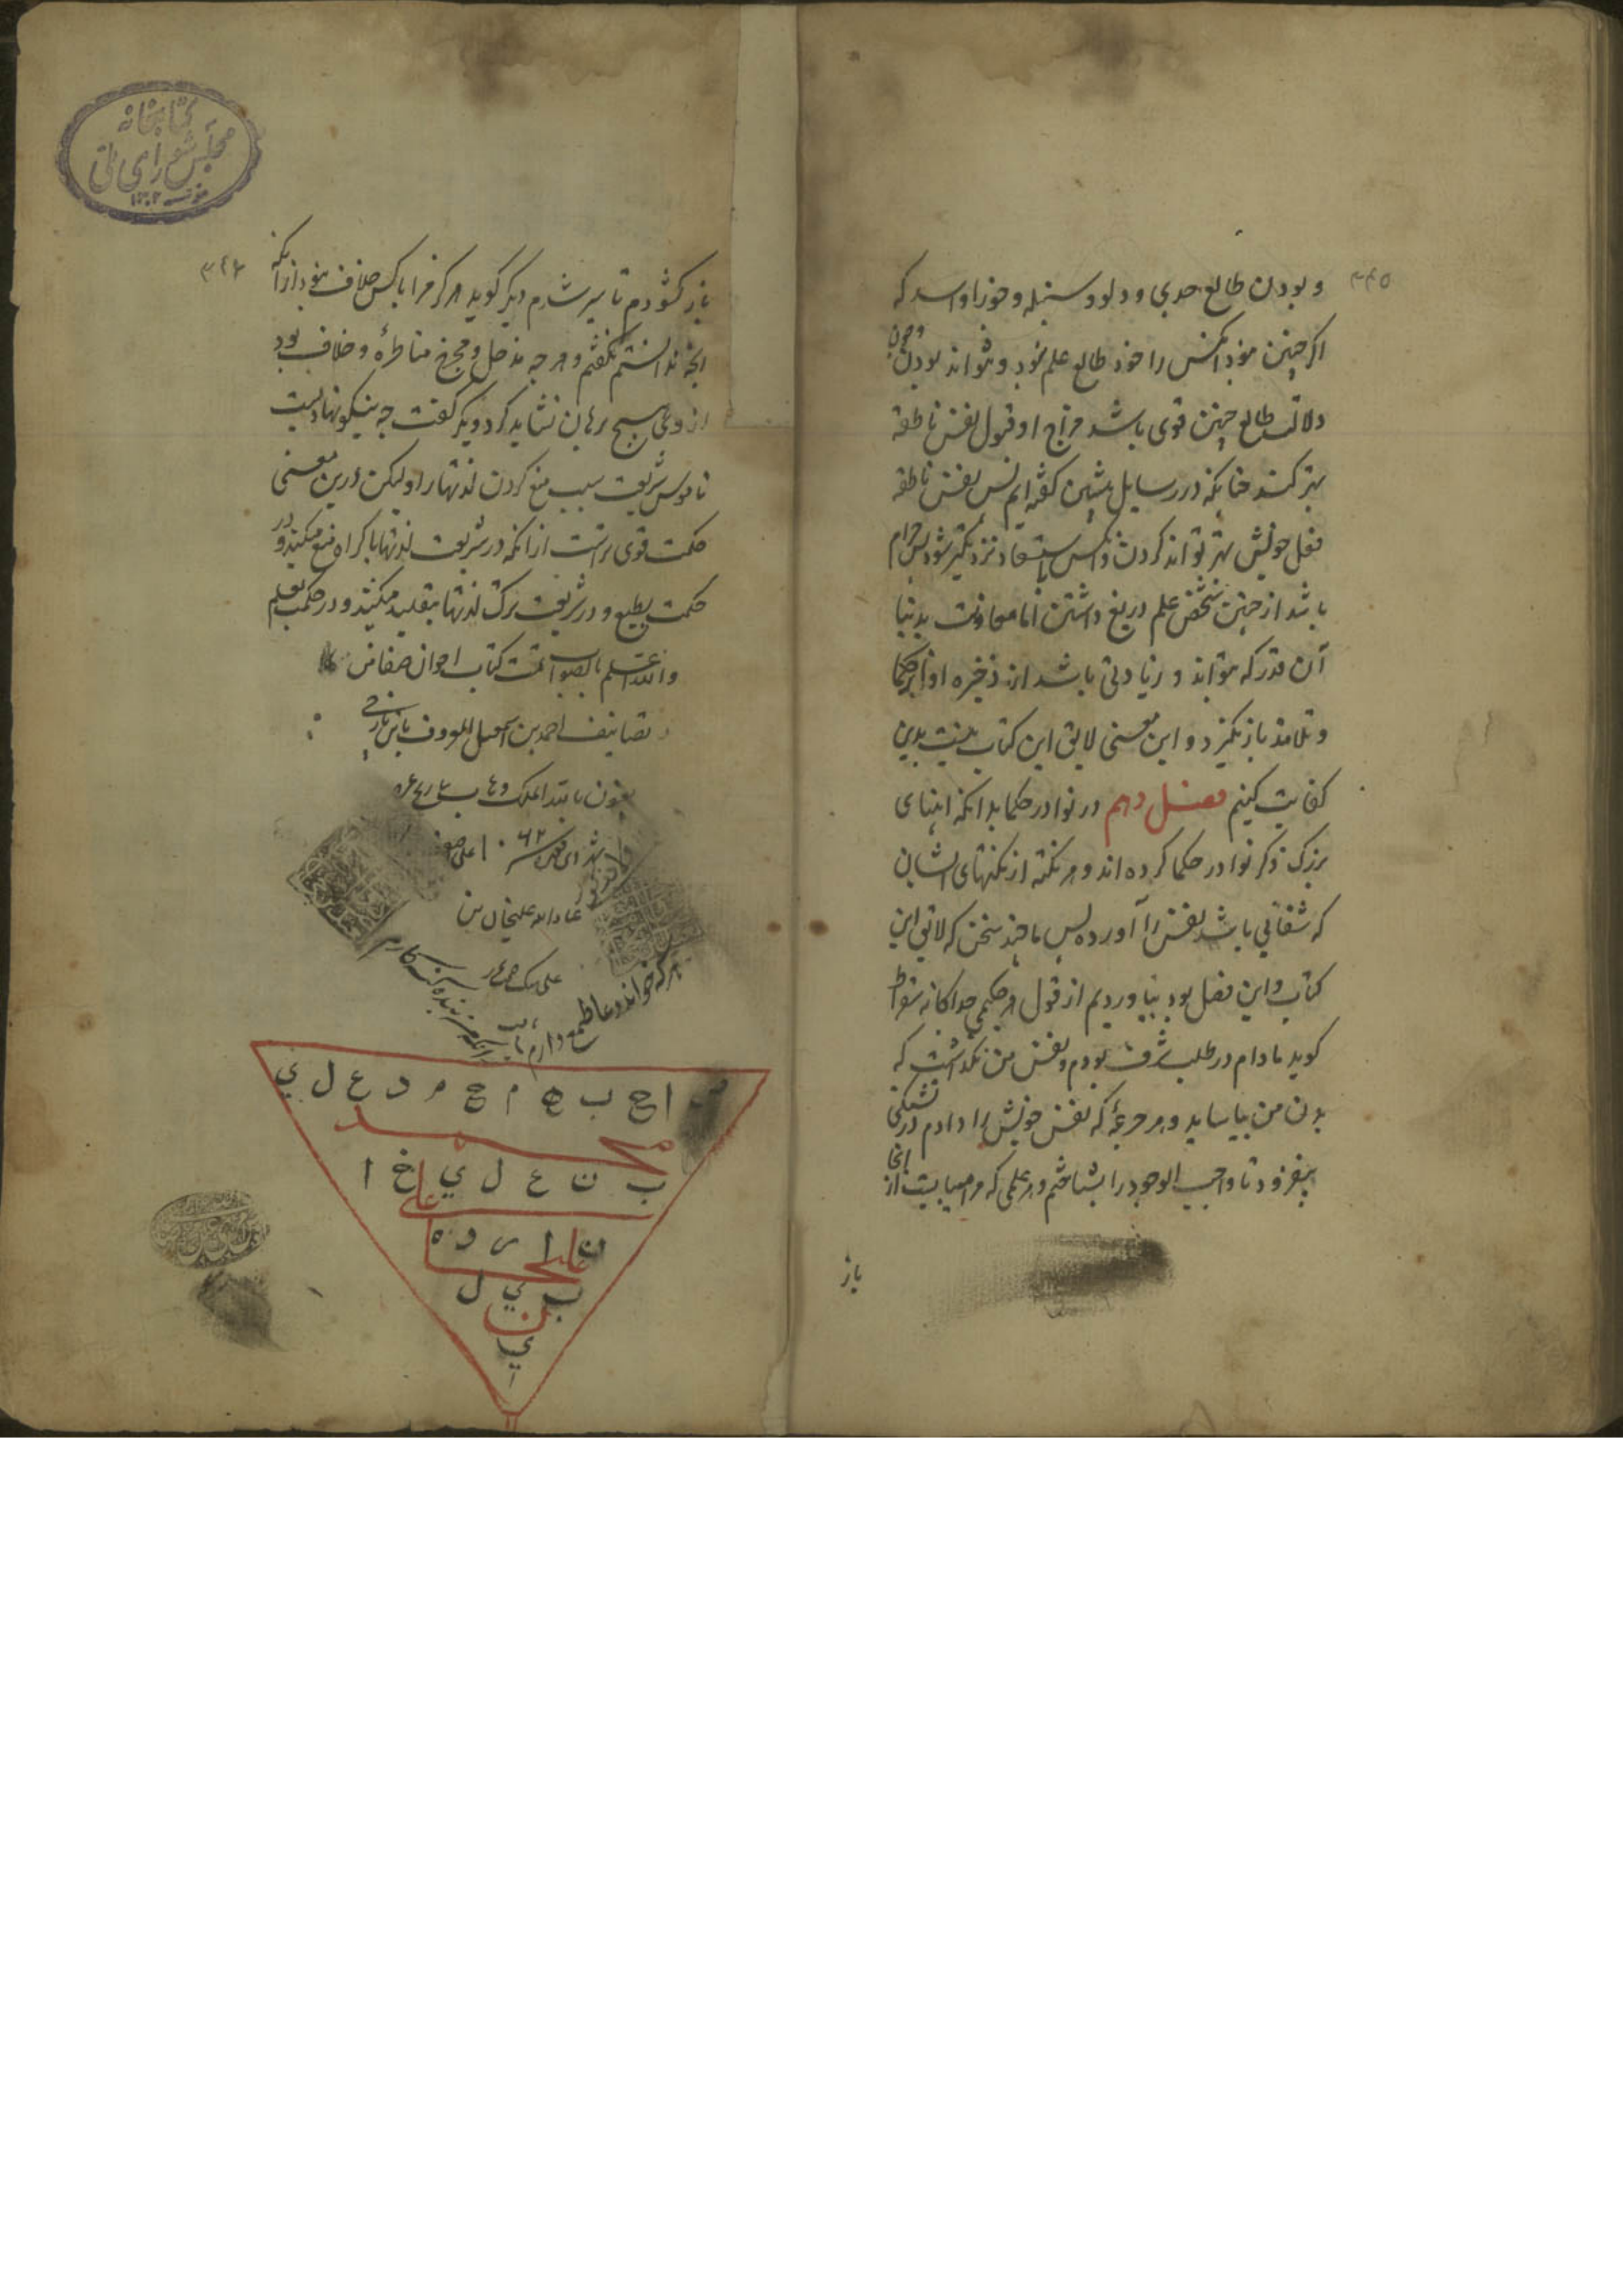 ۳۴۵
و بودن طالع جدی و دلو و سنبله و جوزا و اسد که
اگر چنین نبود آنکس را خود طالع علم نبود و نتواند بودن و چون
دلالت طالع چنین قوی باشد مزاج او قبول نفس ناطقه
بهتر کند چنانکه در رسایل پیشین گفته‌ایم پس نفس ناطقه
فعل خویش بهتر تواند کردن و آنکس باستعاد نزدیکتر شود پس حرام
باشد از چنین شخص علم دریغ داشتن اما معاونت بدنیا
آن قدر که بتواند و زیادتی باشد از ذخیره او از حکما
و تلامذه باز نگیرد و این معنی لایق این کتاب نیست بدین
کفایت کنیم فصل دهم در نوادر حکما بدانکه ابنای
بزرگ ذکر نوادر حکما کرده‌اند و هر نکته از نکتهای ایشان
که شفائی باشد نفس را آورده پس ما چند سخن که لایق این
کتاب و این فصل بود بیاوردیم از قول هر حکیمی جداگانه سقراط
گوید مادام در طلب شرف بودم و نفس من نگذاشت که
بدن من بیاساید و هر جرعهٔ که نفس خویش را دادم در تشنگی
بیفزود تا واجب الوجود را بشناختم و هر علمی که مرا میبایست از آنجا
باز
کتابخانه
مجلس شورای ملی
۱۳۰۲
باز گشودم تا سیر شدم دیگر گوید هرگز مرا با کس خلاف نبود از آنکه
آنچه ندانستم نگفتم و هر چه مدخل و مخرج مناظره و خلاف بود
هیچ برهان نشاید کرد و دیگر گفت چه نیکو نهادیست
ناموس شریعت سبب منع کردن لذتها را ولیکن درین معنی
حکمت قوی‌تر است از آنکه در شریعت لذتها باکراه منع میکنند و در
حکمت بطبع و در شریعت ترک لذتها بتقلید میکنند و در حکمت بعلم
والله اعلم بالصواب تمت کتاب اخوان صفا من
تصانیف احمد بن اسمعیل المعروف
بعون الله الملک
هر که خواند دعا طمع دارم
زانکه من بنده گنه کارم
ص ا ح ب ه م ح م د ع ل ی
محمد
ب ن ع ل ی خ ا
علی
ن ا ر د ه
علیخا
ب ی ل
بن
ی